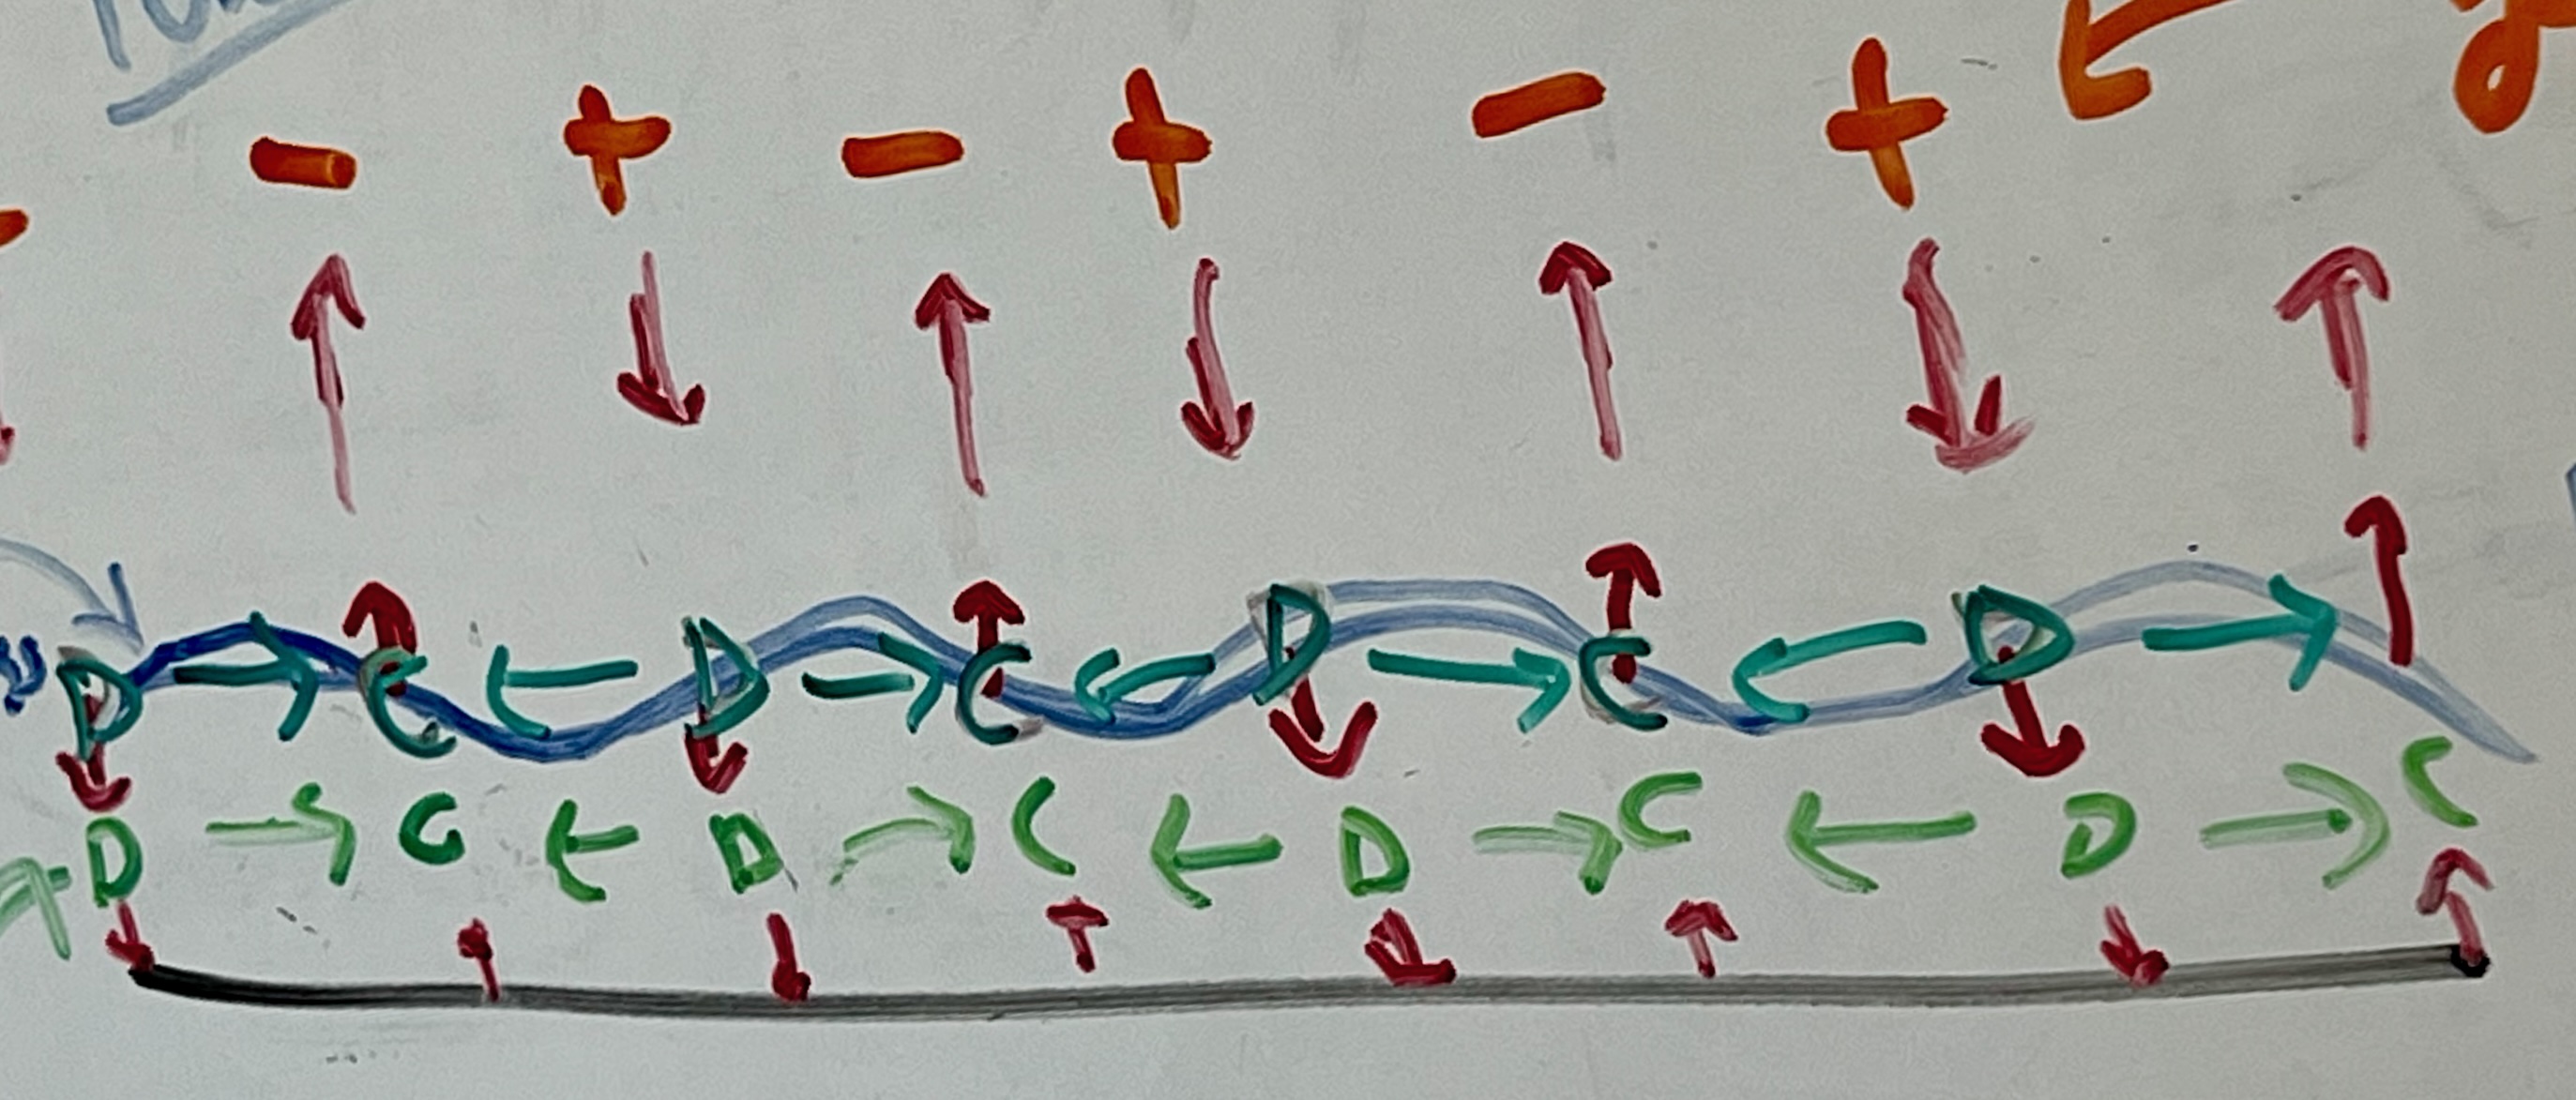 - + - + - +
D → C ← D → C ← D → C ← D →
D → C ← D → C ← D → C ← D → C